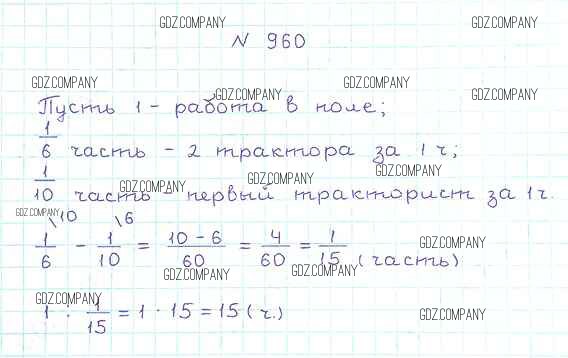 GDZ.COMPANY GDZ.COMPANY
N 960
GDZ.COMPANY GDZ.COMPANY GDZ.COMPANY GDZ.COMPANY
Пусть 1 - работа в поле;
1/6 часть - 2 трактора за 1 ч;
GDZ.COMPANY GDZ.COMPANY GDZ.COMPANY
1/10 часть - первый тракторист за 1 ч.
GDZ.COMPANY
1/6 \10 - 1/10 \6 = 10-6/60 = 4/60 = 1/15 (часть)
GDZ.COMPANY GDZ.COMPANY GDZ.COMPANY
GDZ.COMPANY
1 : 1/15 = 1 · 15 = 15 (ч.)
GDZ.COMPANY